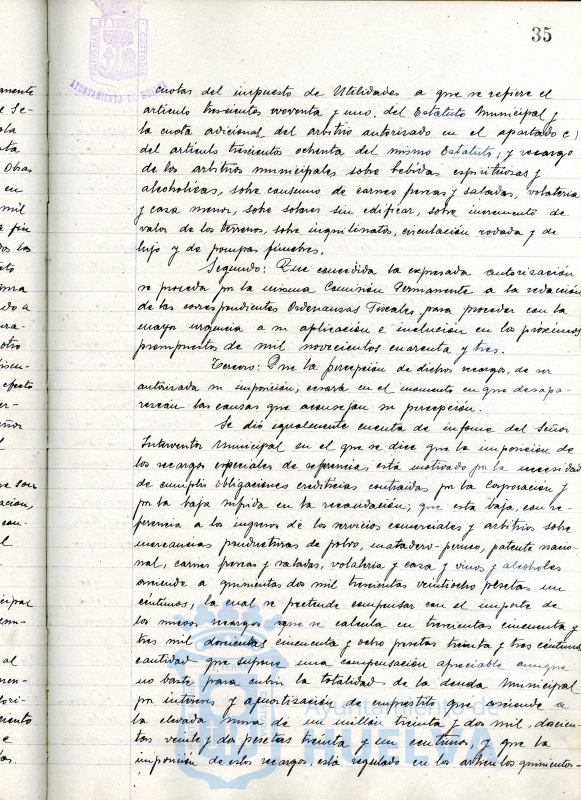 35
AYUNTAMIENTO DE HUELVA
cuotas del impuesto de Utilidades a que se refiere el
artículo trescientos noventa y uno, del Estatuto Municipal y
la cuota adicional del arbitrio autorizado en el apartado c)
del artículo trescientos ochenta del mismo Estatuto; y recargo
de los arbitrios municipales sobre bebidas espirituosas y
alcoholicas, sobre consumo de carnes frescas y saladas, volateria
y caza menor, sobre solares sin edificar, sobre incremento de
valor de los terrenos, sobre inquilinatos, circulación rodada y de
lujo y de pompas fúnebres.
Segundo: Que concedida la expresada autorización
se proceda por la misma Comisión Permanente a la redacción
de las correspondientes Ordenanzas Fiscales, para proceder con la
mayor urgencia a su aplicación e inclusión en los próximos
presupuestos de mil novecientos cuarenta y tres.
Tercero: Que la percepción de dichos recargos, de ser
autorizada su imposición, cesará en el momento en que desapa-
rezcan las causas que aconsejan su percepción.
Se dió igualmente cuenta de informe del Señor
Interventor Municipal en el que se dice que la imposición de
los recargos especiales de referencia, está motivado por la necesidad
de cumplir obligaciones crediticias contraidas por la Corporación y
por la baja sufrida en la recaudación; que esta baja, con re-
ferencia a los ingresos de los servicios comerciales y arbitrios sobre
mercancias productoras de polvo, matadero, patente nacio-
nal, carnes frescas y saladas, volateria y caza y vinos y alcoholes
asciende a quinientas dos mil trescientas veintiocho pesetas un
céntimos, la cual se pretende compensar con el importe de
los nuevos recargos que se calcula en trescientas cincuenta y
tres mil doscientas cincuenta y ocho pesetas treinta y tres céntimos
cantidad que supone una compensación apreciable aunque
no baste para cubrir la totalidad de la deuda Municipal
por intereses y amortización de empréstito que asciende a
la elevada suma de un millón treinta y dos mil, doscien-
tas veinte y dos pesetas treinta y un centimos, y que la
imposición de estos recargos, está regulado en los artículos quinientos-
Ayuntamiento de
HUELVA